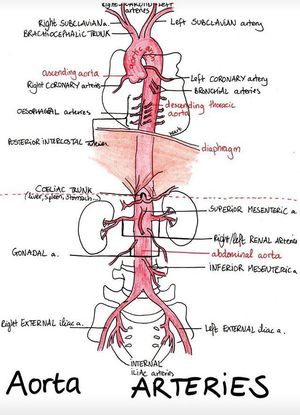 Right KAROTID Left
arteries
Right SUBCLAVIAN a.
Left SUBCLAVIAN artery
BRACHIOCEPHALIC TRUNK
Aortic arch
ascending aorta
Right CORONARY artery
Left CORONARY artery
BRONCHIAL arteries
OESOPHAGEAL arteries
descending thoracic
aorta
POSTERIOR INTERCOSTAL arteries
diaphragm
COELIAC TRUNK
(liver, spleen, stomach)
SUPERIOR MESENTERIC a.
Right/left RENAL arteries
GONADAL a.
abdominal aorta
INFERIOR MESENTERIC a
Right EXTERNAL iliac a.
Left EXTERNAL iliac a.
INTERNAL
iliac arteries
Aorta ARTERIES